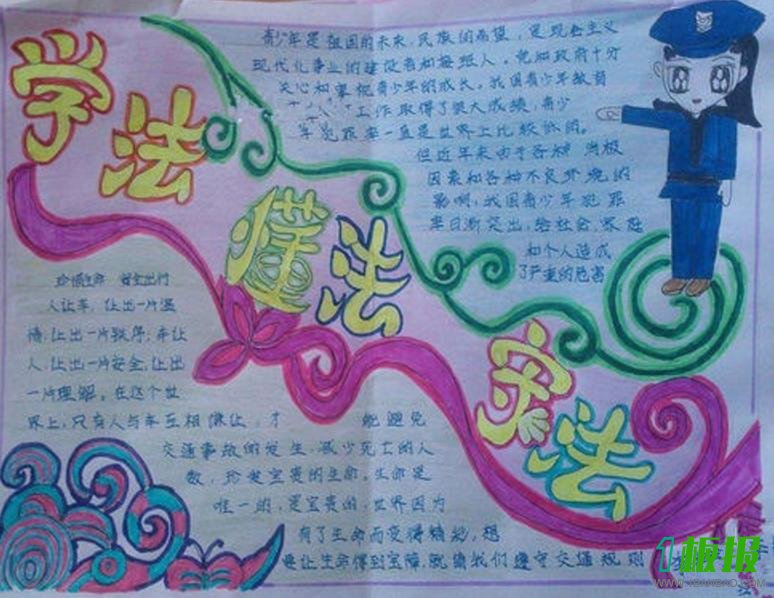 学法
懂法
守法
青少年是祖国的未来,民族的希望,是现会主义
现代化事业的建设者和接班人。党和政府十分
关心和重视青少年的成长。我国青少年教育
工作取得了很大成绩,青少
年犯罪率一直是世界上比较低的。
但近年来由于各种消极
因素和各种不良环境的
影响,我国青少年犯罪
率日渐突出,给社会、家庭
和个人造成
了严重的危害
珍惜生命 安全出行
人让车,让出一片温
情;让出一片秩序;车让
人,让出一片安全;让出
一片理解。在这个世
界上,只有人与车互相谦让,才能避免
交通事故的发生,减少死亡的人
数,珍爱宝贵的生命。生命是
唯一的,是宝贵的,世界因为
有了生命而变得精彩,想
要让生命得到宝障,就请我们遵守交通规则
1板报
WWW.1BANBAO.COM